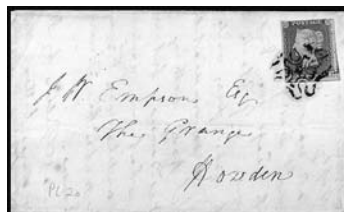 POSTAGE
J W Empson Esq
The Grange
Howden
PL 20